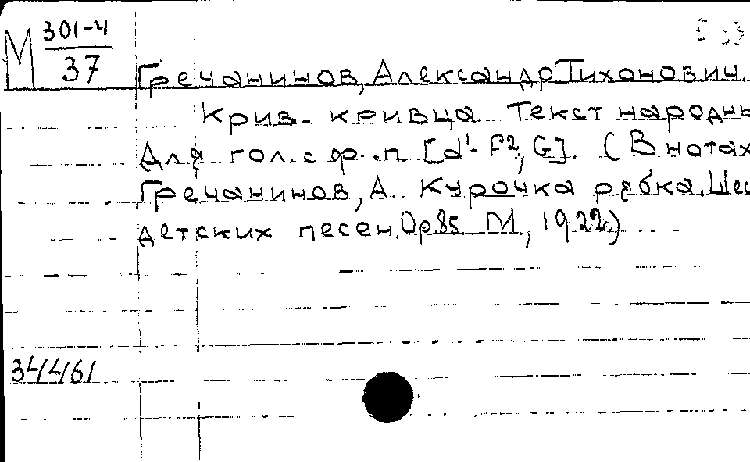 М 301-4
37
Гречанинов, Александр Тихонович.
Крив-кривца Текст народны
Для гол. с ф.-п. [d¹-F², G]. (В нотах
Гречанинов, А. Курочка рябка. Шес
детских песен. Ор. 85 М, 1922)
344461